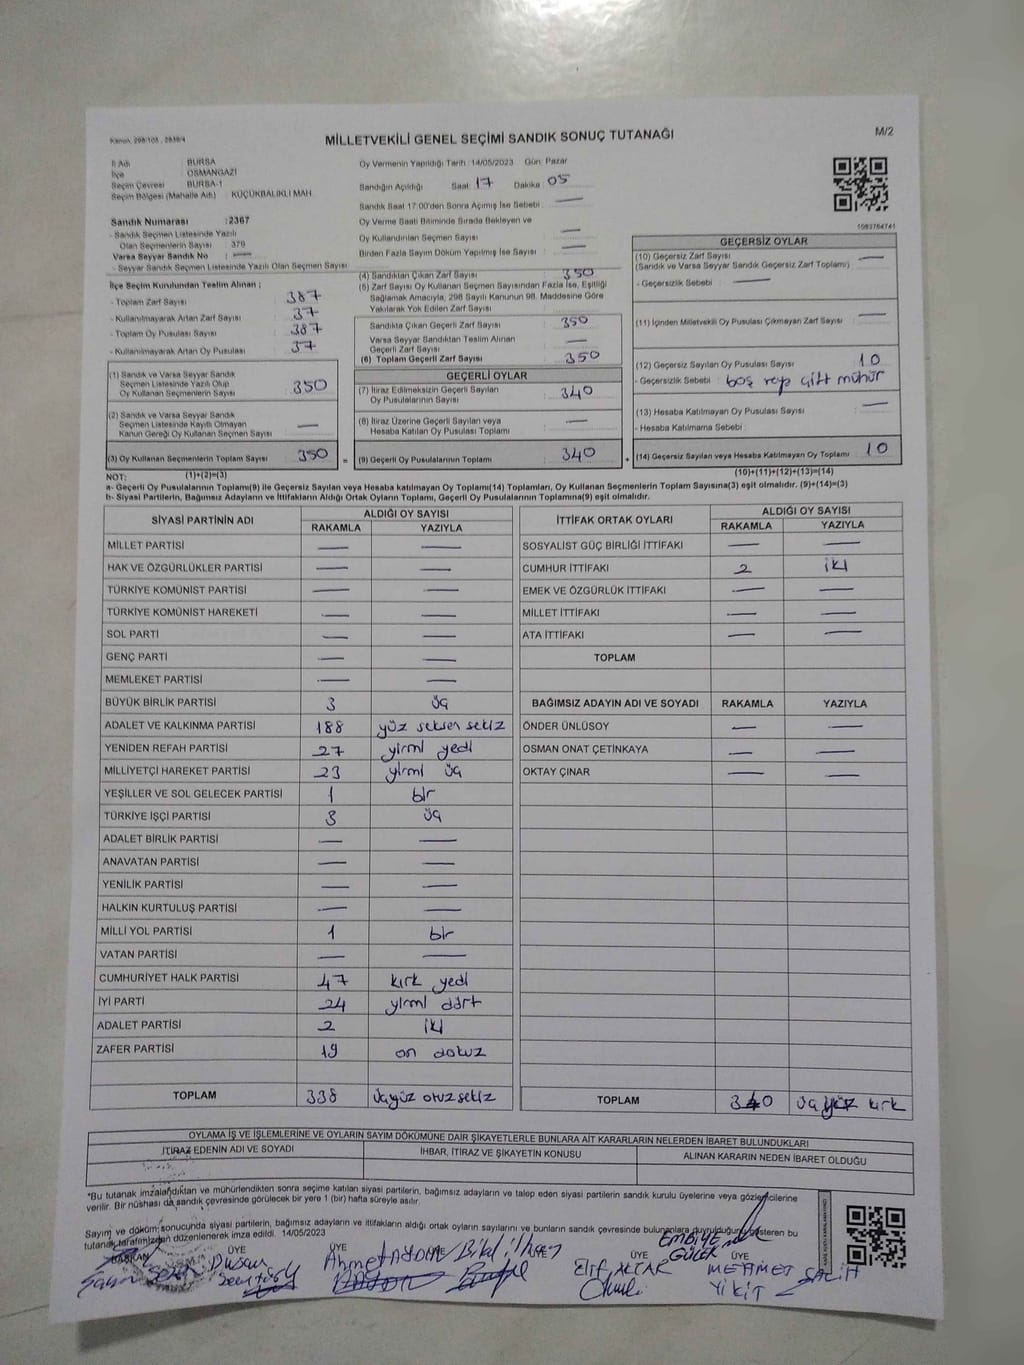 Kanun: 298/105 , 2839/4
MİLLETVEKİLİ GENEL SEÇİMİ SANDIK SONUÇ TUTANAĞI
M/2
İl Adı : BURSA
İlçe : OSMANGAZİ
Seçim Çevresi : BURSA-1
Seçim Bölgesi (Mahalle Adı) : KÜÇÜKBALIKLI MAH.
Sandık Numarası : 2367
- Sandık Seçmen Listesinde Yazılı
Olan Seçmenlerin Sayısı : 379
Varsa Seyyar Sandık No : —
- Seyyar Sandık Seçmen Listesinde Yazılı Olan Seçmen Sayısı
İlçe Seçim Kurulundan Teslim Alınan ;
- Toplam Zarf Sayısı : 387
- Kullanılmayarak Artan Zarf Sayısı : 37
- Toplam Oy Pusulası Sayısı : 387
- Kullanılmayarak Artan Oy Pusulası : 37
(1) Sandık ve Varsa Seyyar Sandık
Seçmen Listesinde Yazılı Olup
Oy Kullanan Seçmenlerin Sayısı : 350
(2) Sandık ve Varsa Seyyar Sandık
Seçmen Listesinde Kayıtlı Olmayan
Kanun Gereği Oy Kullanan Seçmen Sayısı : —
(3) Oy Kullanan Seçmenlerin Toplam Sayısı : 350
Oy Vermenin Yapıldığı Tarih : 14/05/2023 Gün: Pazar
Sandığın Açıldığı Saat : 17 Dakika : 05
Sandık Saat 17:00'den Sonra Açılmış İse Sebebi : —
Oy Verme Saati Bitiminde Sırada Bekleyen ve
Oy Kullandırılan Seçmen Sayısı : —
Birden Fazla Sayım Döküm Yapılmış İse Sayısı : —
(4) Sandıktan Çıkan Zarf Sayısı : 350
(5) Zarf Sayısı Oy Kullanan Seçmen Sayısından Fazla İse, Eşitliği
Sağlamak Amacıyla, 298 Sayılı Kanunun 98. Maddesine Göre
Yakılarak Yok Edilen Zarf Sayısı :
Sandıkta Çıkan Geçerli Zarf Sayısı : 350
Varsa Seyyar Sandıktan Teslim Alınan
Geçerli Zarf Sayısı : —
(6) Toplam Geçerli Zarf Sayısı : 350
GEÇERLİ OYLAR
(7) İtiraz Edilmeksizin Geçerli Sayılan
Oy Pusulalarının Sayısı : 340
(8) İtiraz Üzerine Geçerli Sayılan veya
Hesaba Katılan Oy Pusulaları Toplamı : —
= (9) Geçerli Oy Pusulalarının Toplamı : 340
1083764741
GEÇERSİZ OYLAR
(10) Geçersiz Zarf Sayısı : —
(Sandık ve Varsa Seyyar Sandık Geçersiz Zarf Toplamı)
- Geçersizlik Sebebi : —
(11) İçinden Milletvekili Oy Pusulası Çıkmayan Zarf Sayısı : —
(12) Geçersiz Sayılan Oy Pusulası Sayısı : 10
- Geçersizlik Sebebi : boş veya çift mühür
(13) Hesaba Katılmayan Oy Pusulası Sayısı : —
- Hesaba Katılmama Sebebi :
+ (14) Geçersiz Sayılan veya Hesaba Katılmayan Oy Toplamı : 10
NOT: (1)+(2)=(3) (10)+(11)+(12)+(13)=(14)
a- Geçerli Oy Pusulalarının Toplamı(9) ile Geçersiz Sayılan veya Hesaba katılmayan Oy Toplamı(14) Toplamları, Oy Kullanan Seçmenlerin Toplam Sayısına(3) eşit olmalıdır. (9)+(14)=(3)
b- Siyasi Partilerin, Bağımsız Adayların ve İttifakların Aldığı Ortak Oyların Toplamı, Geçerli Oy Pusulalarının Toplamına(9) eşit olmalıdır.
SİYASİ PARTİNİN ADI ALDIĞI OY SAYISI
RAKAMLA YAZIYLA
MİLLET PARTİSİ — —
HAK VE ÖZGÜRLÜKLER PARTİSİ — —
TÜRKİYE KOMÜNİST PARTİSİ — —
TÜRKİYE KOMÜNİST HAREKETİ — —
SOL PARTİ — —
GENÇ PARTİ — —
MEMLEKET PARTİSİ — —
BÜYÜK BİRLİK PARTİSİ 3 üç
ADALET VE KALKINMA PARTİSİ 188 yüz seksen sekiz
YENİDEN REFAH PARTİSİ 27 yirmi yedi
MİLLİYETÇİ HAREKET PARTİSİ 23 yirmi üç
YEŞİLLER VE SOL GELECEK PARTİSİ 1 bir
TÜRKİYE İŞÇİ PARTİSİ 3 üç
ADALET BİRLİK PARTİSİ — —
ANAVATAN PARTİSİ — —
YENİLİK PARTİSİ — —
HALKIN KURTULUŞ PARTİSİ — —
MİLLİ YOL PARTİSİ 1 bir
VATAN PARTİSİ — —
CUMHURİYET HALK PARTİSİ 47 kırk yedi
İYİ PARTİ 24 yirmi dört
ADALET PARTİSİ 2 iki
ZAFER PARTİSİ 19 on dokuz
TOPLAM 338 üçyüz otuz sekiz
İTTİFAK ORTAK OYLARI ALDIĞI OY SAYISI
RAKAMLA YAZIYLA
SOSYALİST GÜÇ BİRLİĞİ İTTİFAKI — —
CUMHUR İTTİFAKI 2 iki
EMEK VE ÖZGÜRLÜK İTTİFAKI — —
MİLLET İTTİFAKI — —
ATA İTTİFAKI — —
TOPLAM
BAĞIMSIZ ADAYIN ADI VE SOYADI RAKAMLA YAZIYLA
ÖNDER ÜNLÜSOY — —
OSMAN ONAT ÇETİNKAYA — —
OKTAY ÇINAR — —
TOPLAM 340 üç yüz kırk
OYLAMA İŞ VE İŞLEMLERİNE VE OYLARIN SAYIM DÖKÜMÜNE DAİR ŞİKAYETLERLE BUNLARA AİT KARARLARIN NELERDEN İBARET BULUNDUKLARI
İTİRAZ EDENİN ADI VE SOYADI İHBAR, İTİRAZ VE ŞİKAYETİN KONUSU ALINAN KARARIN NEDEN İBARET OLDUĞU
*Bu tutanak imzalandıktan ve mühürlendikten sonra seçime katılan siyasi partilerin, bağımsız adayların ve talep eden siyasi partilerin sandık kurulu üyelerine veya gözlemcilerine
verilir. Bir nüshası da sandık çevresinde görülecek bir yere 1 (bir) hafta süreyle asılır.
Sayım ve döküm sonucunda siyasi partilerin, bağımsız adayların ve ittifakların aldığı ortak oyların sayılarını ve bunların sandık çevresinde bulunanlara duyrulduğunu gösteren bu
tutanak tarafımızdan düzenlenerek imza edildi. 14/05/2023
BAŞKAN ÜYE ÜYE ÜYE ÜYE
Dursun Ahmet Bilal Elif ALTAR EMBİYE GÜLER MEHMET YİKİT SALİH